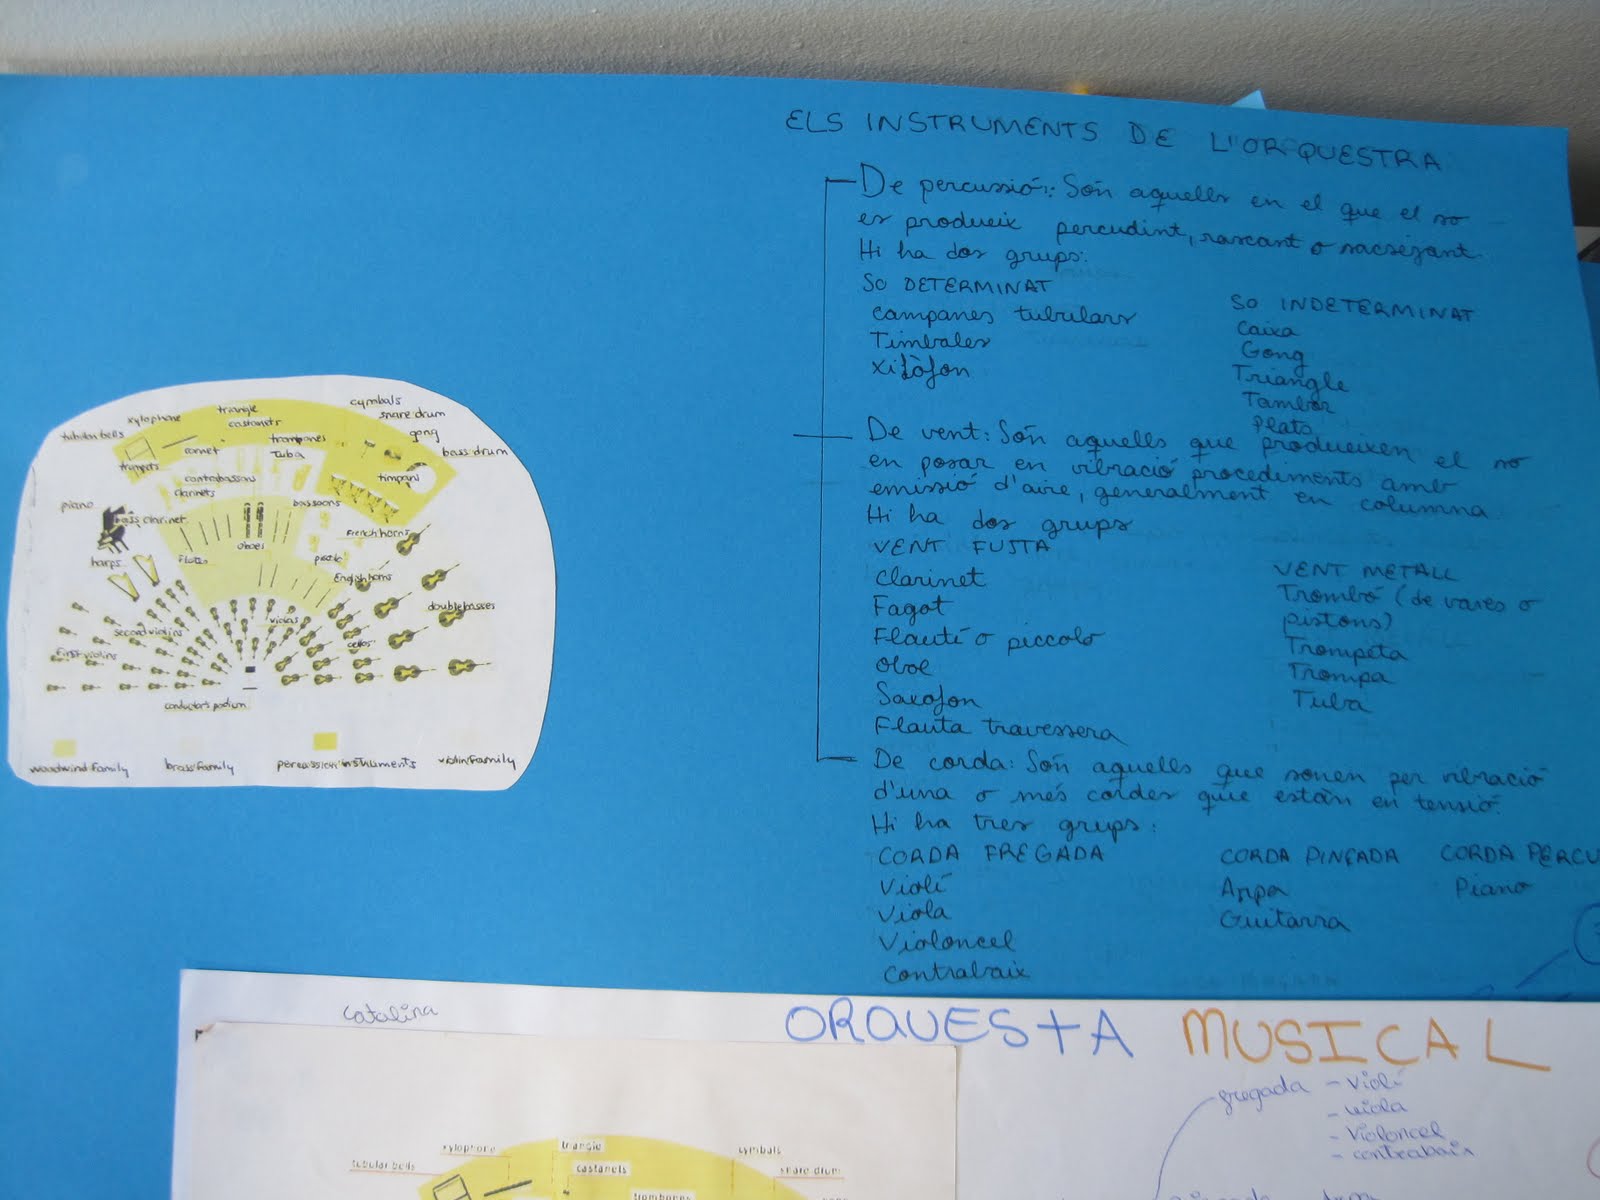 ELS INSTRUMENTS DE L'ORQUESTRA
De percussió: Són aquells en el que el so
es produeix percudint, rascant o sacsejant.
Hi ha dos grups:
SO DETERMINAT
campanes tubulars
Timbales
Xilòfon
SO INDETERMINAT
Caixa
Gong
Triangle
Tambor
Plats
De vent: Són aquells que produeixen el so
en posar en vibració procediments amb
emissió d'aire, generalment en columna.
Hi ha dos grups
VENT FUSTA
Clarinet
Fagot
Flautí o piccolo
Oboe
Saxofon
Flauta travessera
VENT METALL
Trombó (de vares o
pistons)
Trompeta
Trompa
Tuba
De corda: Són aquells que sonen per vibració
d'una o més cordes que estàn en tensió.
Hi ha tres grups:
CORDA FREGADA
Violí
Viola
Violoncel
Contrabaix
CORDA PINÇADA
Arpa
Guitarra
CORDA PERCU
Piano
cymbals
triangle
snare drum
xylophone
castanets
gong
tubular bells
trombones
cornet
Tuba
bass drum
trumpets
contrabassons
timpani
clarinets
piano
bassoons
bass clarinet
French horns
oboes
harps
flutes
English horns
double basses
violas
second violins
cellos
First violins
conductor's podium
woodwind family
brass family
percussion instruments
violin family
Catalina
ORQUESTA MUSICAL
fregada - Violí
- viola
- Violoncel
- contrabaix
xylophone
triangle
cymbals
tubular bells
castanets
snare drum
trombones